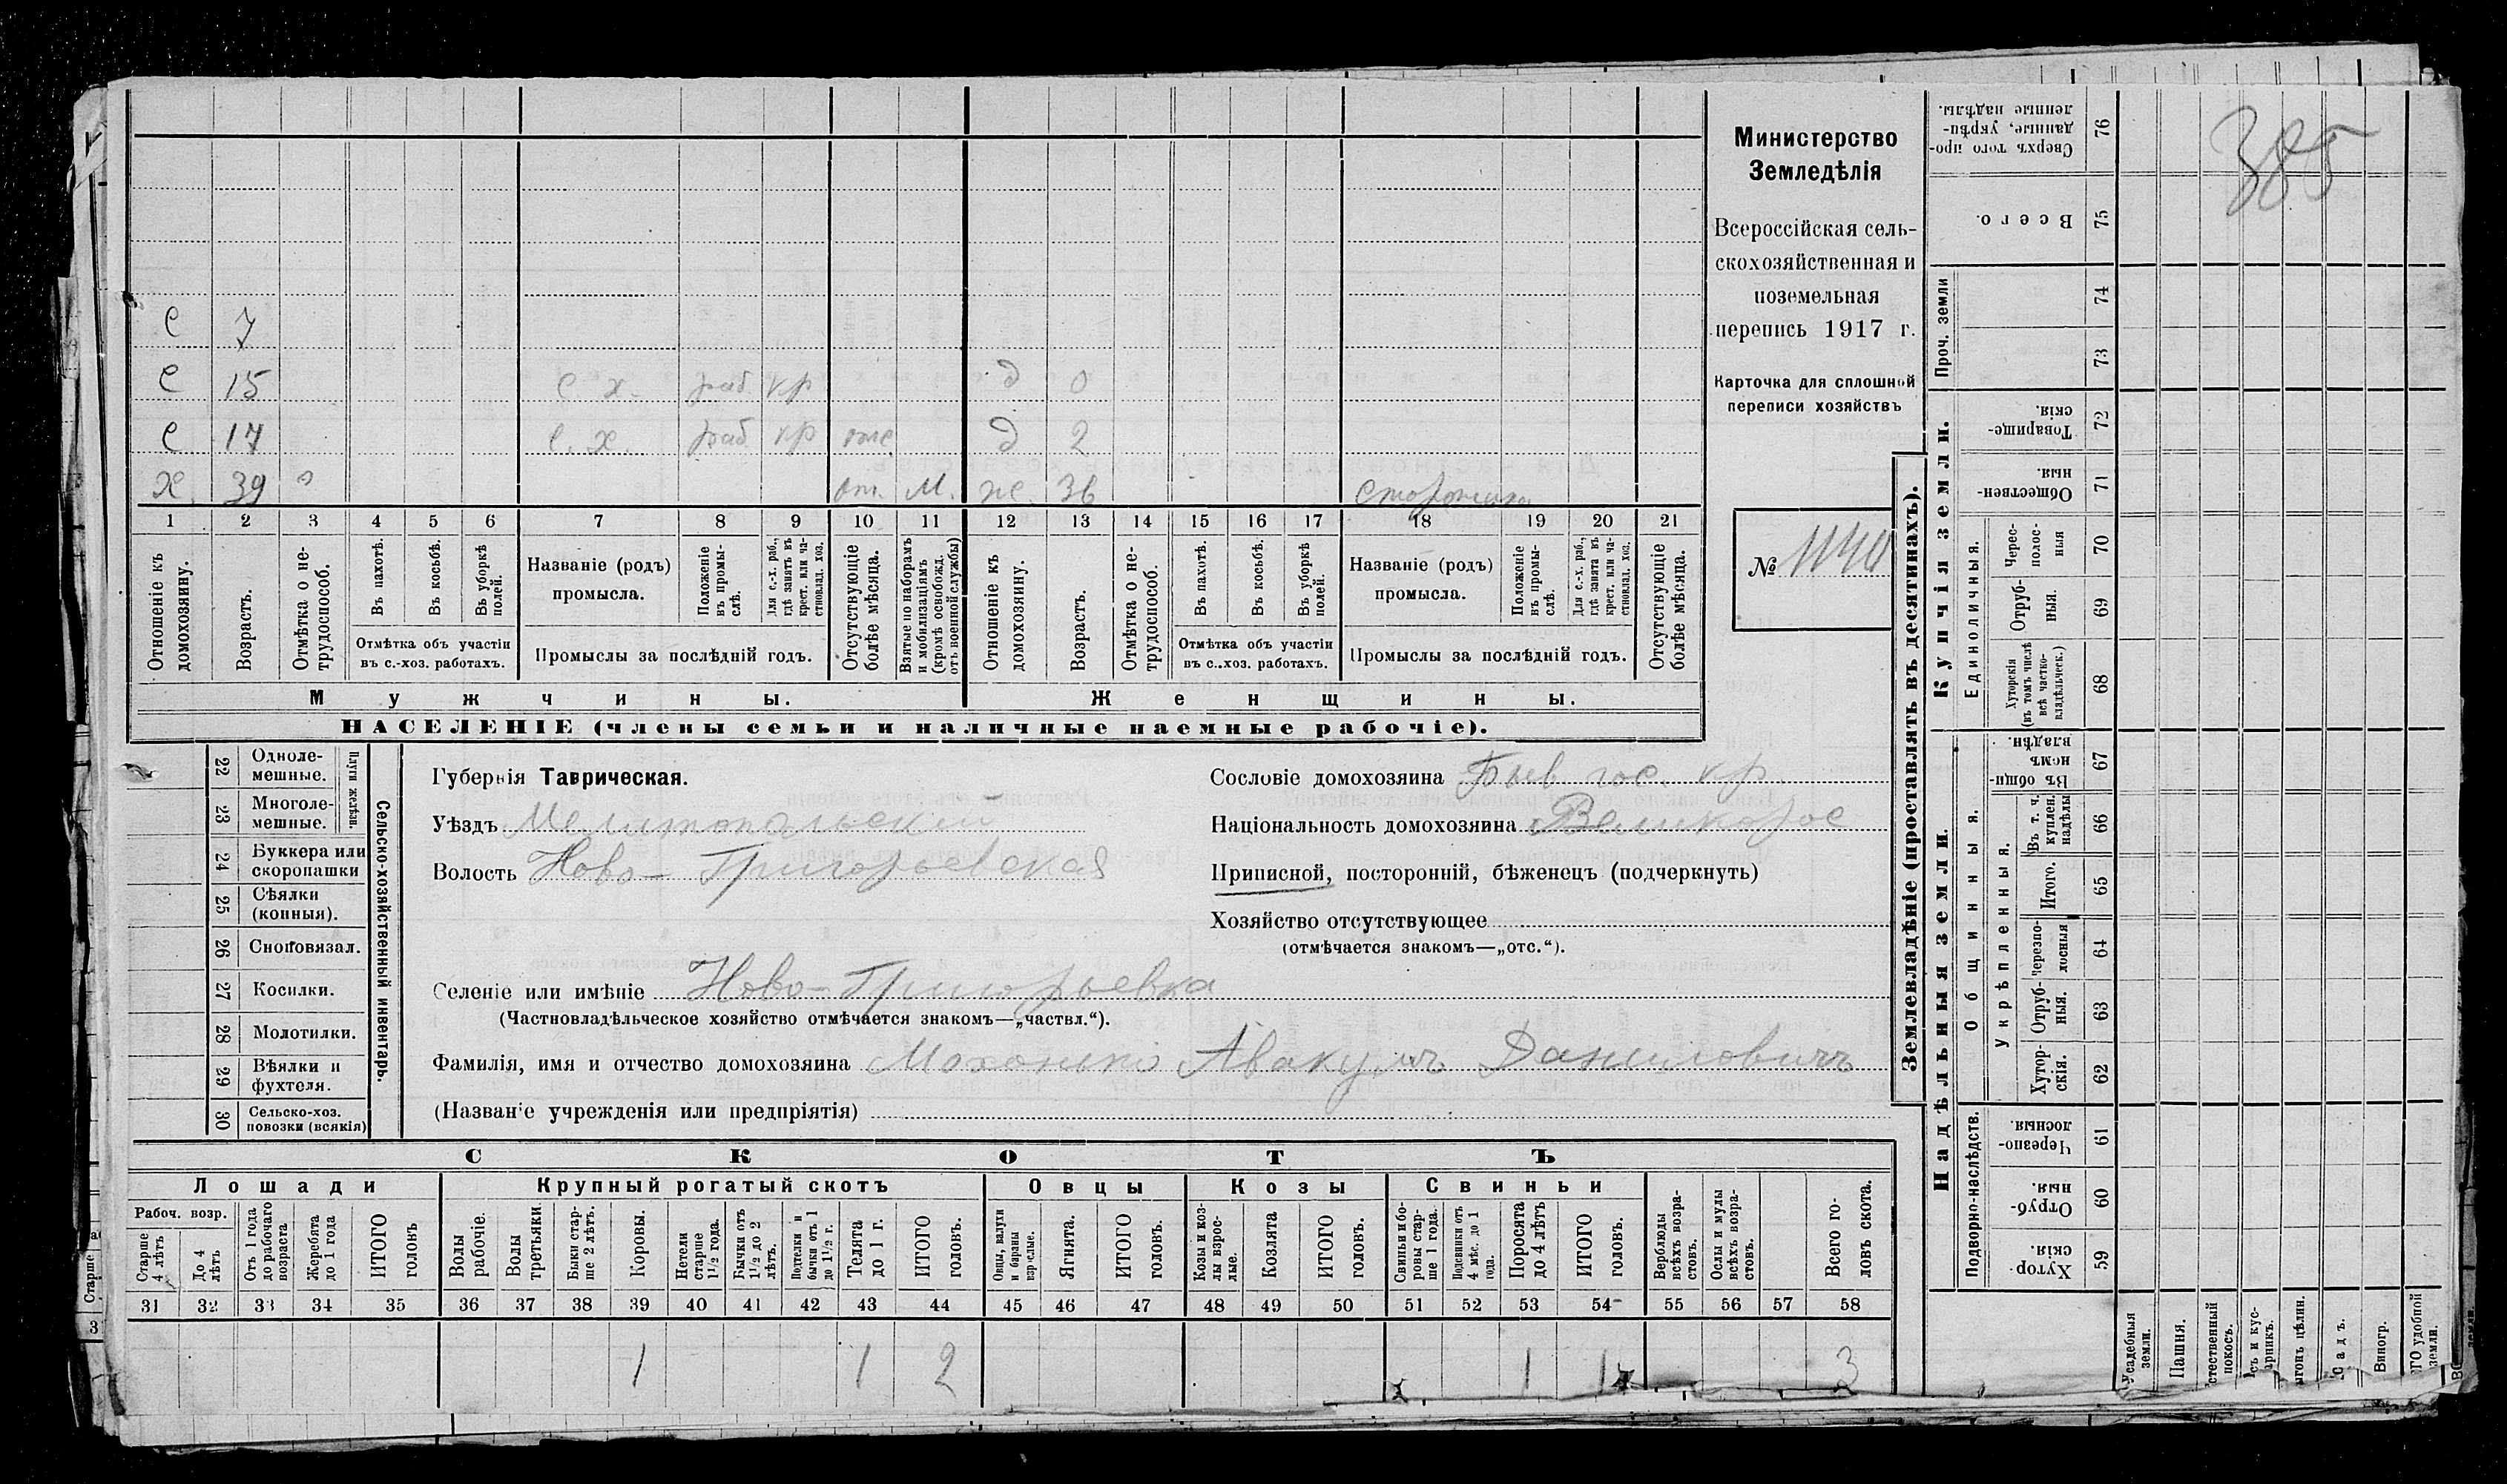 Министерство
Земледѣлія
Всероссійская сель-
скохозяйственная и
поземельная
перепись 1917 г.
Карточка для сплошной
переписи хозяйствъ
№
385
С 7
С 15 С. х. раб кр д 0
С 17 С. х. раб кр д 2
Х. 39 от. М. ж. 36 сторожиха
1 2 3 4 5 6 7 8 9 10 11 12 13 14 15 16 17 18 19 20 21
Отношеніе къ домохозяину.
Возрастъ.
Отмѣтка о не-
трудоспособ.
Въ пахотѣ.
Въ косьбѣ.
Въ уборкѣ полей.
Отмѣтка объ участіи
въ с.-хоз. работахъ.
Названіе (родъ)
промысла.
Положеніе въ промы-
слѣ.
Для с.-х. раб., гдѣ занятъ въ крест. или ча-
стновлад. хоз.
Промыслы за послѣдній годъ.
Отсутствующіе болѣе мѣсяца.
Взятые по наборамъ и мобилизаціямъ (кромѣ освобожд. отъ военной службы)
Отношеніе къ домохозяину.
Возрастъ.
Отмѣтка о не-
трудоспособ.
Въ пахотѣ.
Въ косьбѣ.
Въ уборкѣ полей.
Отмѣтка объ участіи
въ с..хоз. работахъ.
Названіе (родъ)
промысла.
Положеніе въ промы-
слѣ.
Для с.-х. раб., гдѣ занята въ крест. или ча-
стновлад. хоз.
Промыслы за послѣдній годъ.
Отсутствующіе болѣе мѣсяца.
Мужчины.
Женщины.
НАСЕЛЕНІЕ (члены семьи и наличные наемные рабочіе).
22 Одноле-
мешные.
23 Многоле-
мешные.
Плуги желѣзн.
24 Буккера или
скоропашки
25 Сѣялки
(конныя).
26 Сноповязал.
27 Косилки.
28 Молотилки.
29 Вѣялки и
фухтеля.
30 Сельско-хоз.
повозки (всякія)
Сельско-хозяйственный инвентарь.
Губернія Таврическая.
Уѣздъ Мелитопольскій
Волость Ново-Григорьевская
Селеніе или имѣніе Ново-Григорьевка
(Частновладѣльческое хозяйство отмѣчается знакомъ—„частвл.“).
Сословіе домохозяина Быв гос. кр.
Національность домохозяина Великорос
Приписной, посторонній, бѣженецъ (подчеркнуть)
Хозяйство отсутствующее
(отмѣчается знакомъ—„отс.“).
Фамилія, имя и отчество домохозяина Махонько Авакумъ Даниловичъ
(Названіе учрежденія или предпріятія)
СКОТЪ
Лошади
Рабоч. возр.
Старше 4 лѣтъ
До 4 лѣтъ
Отъ 1 года до рабочаго возраста
Жеребята до 1 года
ИТОГО головъ
Крупный рогатый скотъ
Волы рабочіе.
Волы третьяки.
Быки стар-
ше 2 лѣтъ.
Коровы.
Нетели старше 1 1/2 года.
Бычки отъ 1 1/2 до 2 лѣтъ.
Подтелки и бычки отъ 1 до 1 1/2 г.
Телята до 1 г.
ИТОГО головъ.
Овцы
Овцы, валухи и бараны взрослые.
Ягнята.
ИТОГО головъ.
Козы
Козы и коз-
лы взрос-
лые.
Козлята
ИТОГО головъ.
Свиньи
Свиньи и бо-
ровы стар-
ше 1 года.
Подсвинки отъ 4 мѣс. до 1 года.
Поросята до 4 лѣтъ
ИТОГО головъ.
Верблюды всѣхъ возра-
стовъ.
Ослы и мулы всѣхъ возра-
стовъ.
Всего го-
ловъ скота.
31 32 33 34 35 36 37 38 39 40 41 42 43 44 45 46 47 48 49 50 51 52 53 54 55 56 57 58
1 1 2 1 1 3
Землевладѣніе (проставлять въ десятинахъ).
Купчія земли.
Надѣльныя земли.
Сверхъ того про-
данные, укрѣп-
ленные надѣлы. 76
Всего. 75
Проч. земли
74
73
Товарище-
скія. 72
Обществен-
ныя 71
Единоличныя.
Черес-
полос-
ныя 70
Отруб-
ныя. 69
Хуторскія (въ томъ числѣ всѣ частно-
владѣльческ.) 68
Общинныя.
Въ общин-
номъ владѣн. 67
Укрѣпленныя.
Въ т. ч. куплен. надѣлы 66
Итого. 65
Черезпо-
лосныя 64
Отруб-
ныя. 63
Хутор-
скія. 62
Подворно-наслѣдств.
Черезпо-
лосныя. 61
Отруб-
ныя. 60
Хутор-
скія. 59
Усадебныя земли.
Пашня.
Садъ.
Виногр.